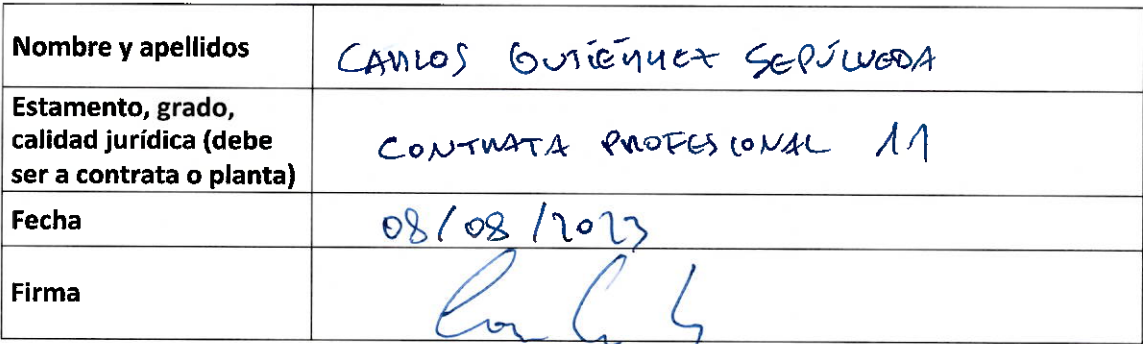 Nombre y apellidos
CARLOS GUTIÉRREZ SEPÚLVEDA
Estamento, grado,
calidad jurídica (debe
ser a contrata o planta)
CONTRATA PROFESIONAL 11
Fecha
08/08/2023
Firma